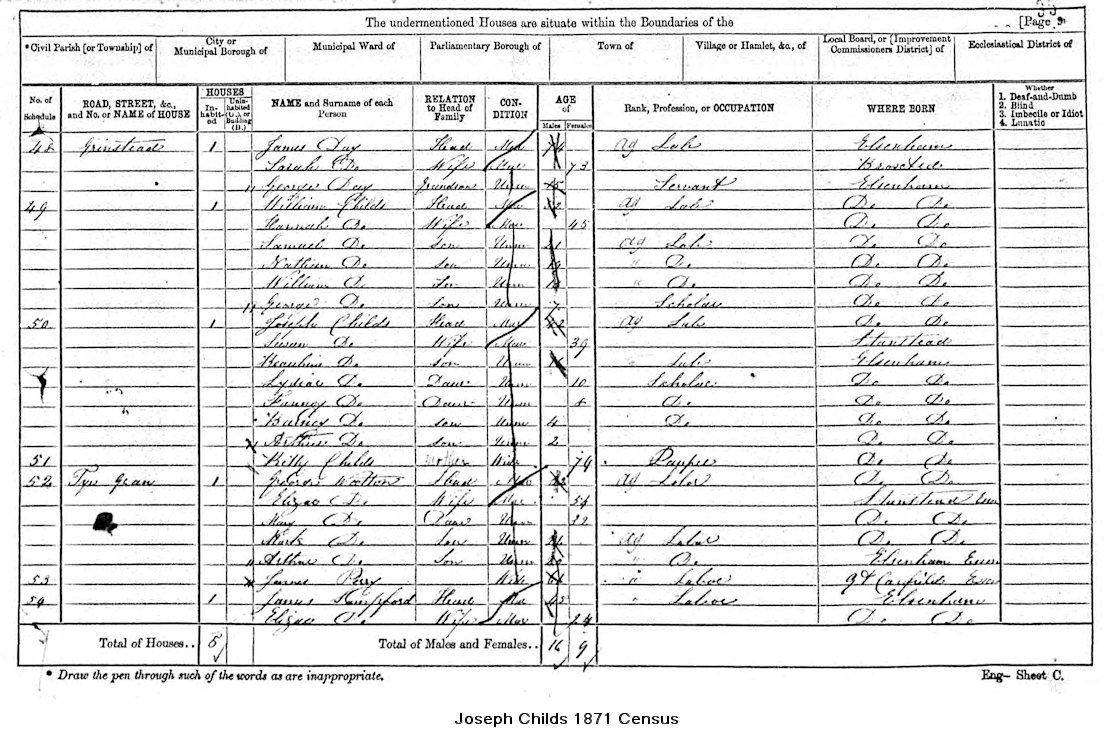 The undermentioned Houses are situate within the Boundaries of the
[Page 9
* Civil Parish [or Township] of
City or Municipal Borough of
Municipal Ward of
Parliamentary Borough of
Town of
Village or Hamlet, &c., of
Local Board, or [Improvement Commissioners District] of
Ecclesiastical District of
No. of Schedule
ROAD, STREET, &c., and No. or NAME of HOUSE
HOUSES
In-habit-ed
Unin-habited (U.), or Building (B.)
NAME and Surname of each Person
RELATION to Head of Family
CON-DITION
AGE of
Males
Females
Rank, Profession, or OCCUPATION
WHERE BORN
Whether
1. Deaf-and-Dumb
2. Blind
3. Imbecile or Idiot
4. Lunatic
48 Grinstead 1 James Day Head Mar Ag Lab Elsenham
Sarah Do Wife Mar 73
George Day Grandson Unm 15 Servant Elsenham
49 1 William Childs Head Mar Ag Lab Do Do
Hannah Do Wife Mar 45 Do Do
Samuel Do Son Unm 21 Ag Lab Do Do
Nathan Do Son Unm 19 " Do Do Do
William Do Son Unm " Do Do Do
George Do Son Unm 7 Scholar Do Do
50 1 Joseph Childs Head Mar 42 Ag Lab Do Do
Susan Do Wife Mar 39 Stanstead
Do Son Unm Lab Elsenham
Lydia Do Daur Unm 10 Scholar Do Do
Fanny Do Daur Unm 8 Do Do Do
Do Son Unm 4 Do Do Do
Arthur Do Son Unm 2 Do Do
51 Kitty Childs Mother Wid 74 Pauper Do Do
52 Tye Green 1 George Wootton Head Mar Ag Labor Do Do
Eliza Do Wife Mar 54 Stanstead Essex
Mary Do Daur Unm 22 Do Do
Mark Do Son Unm Ag Labor Do Do
Arthur Do Son Unm 20 " Do Elsenham Essex
53 James Perry Wid " Labor Gt Canfield Essex
54 1 James Head Mar " Labor Elsenham
Eliza Do Wife Mar 24 Do Do
Total of Houses.. 5
Total of Males and Females.. 16 9
* Draw the pen through such of the words as are inappropriate.
Eng- Sheet C.
Joseph Childs 1871 Census